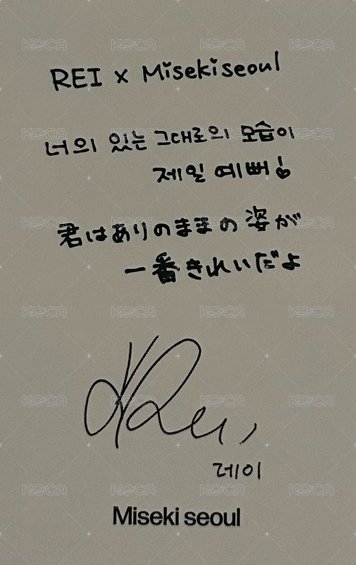 REI x Misekiseoul
너의 있는 그대로의 모습이
제일 예뻐!
君はありのままの姿が
一番きれいだよ
Rei
레이
Miseki seoul